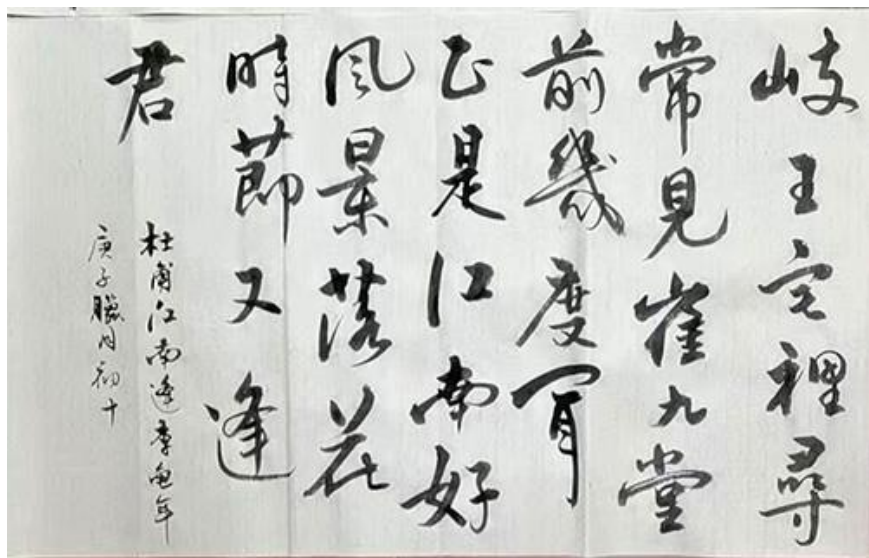 岐王宅裡尋
常見崔九堂
前幾度聞
正是江南好
風景落花
時節又逢
君
杜甫江南逢李龜年
庚子臘月初十